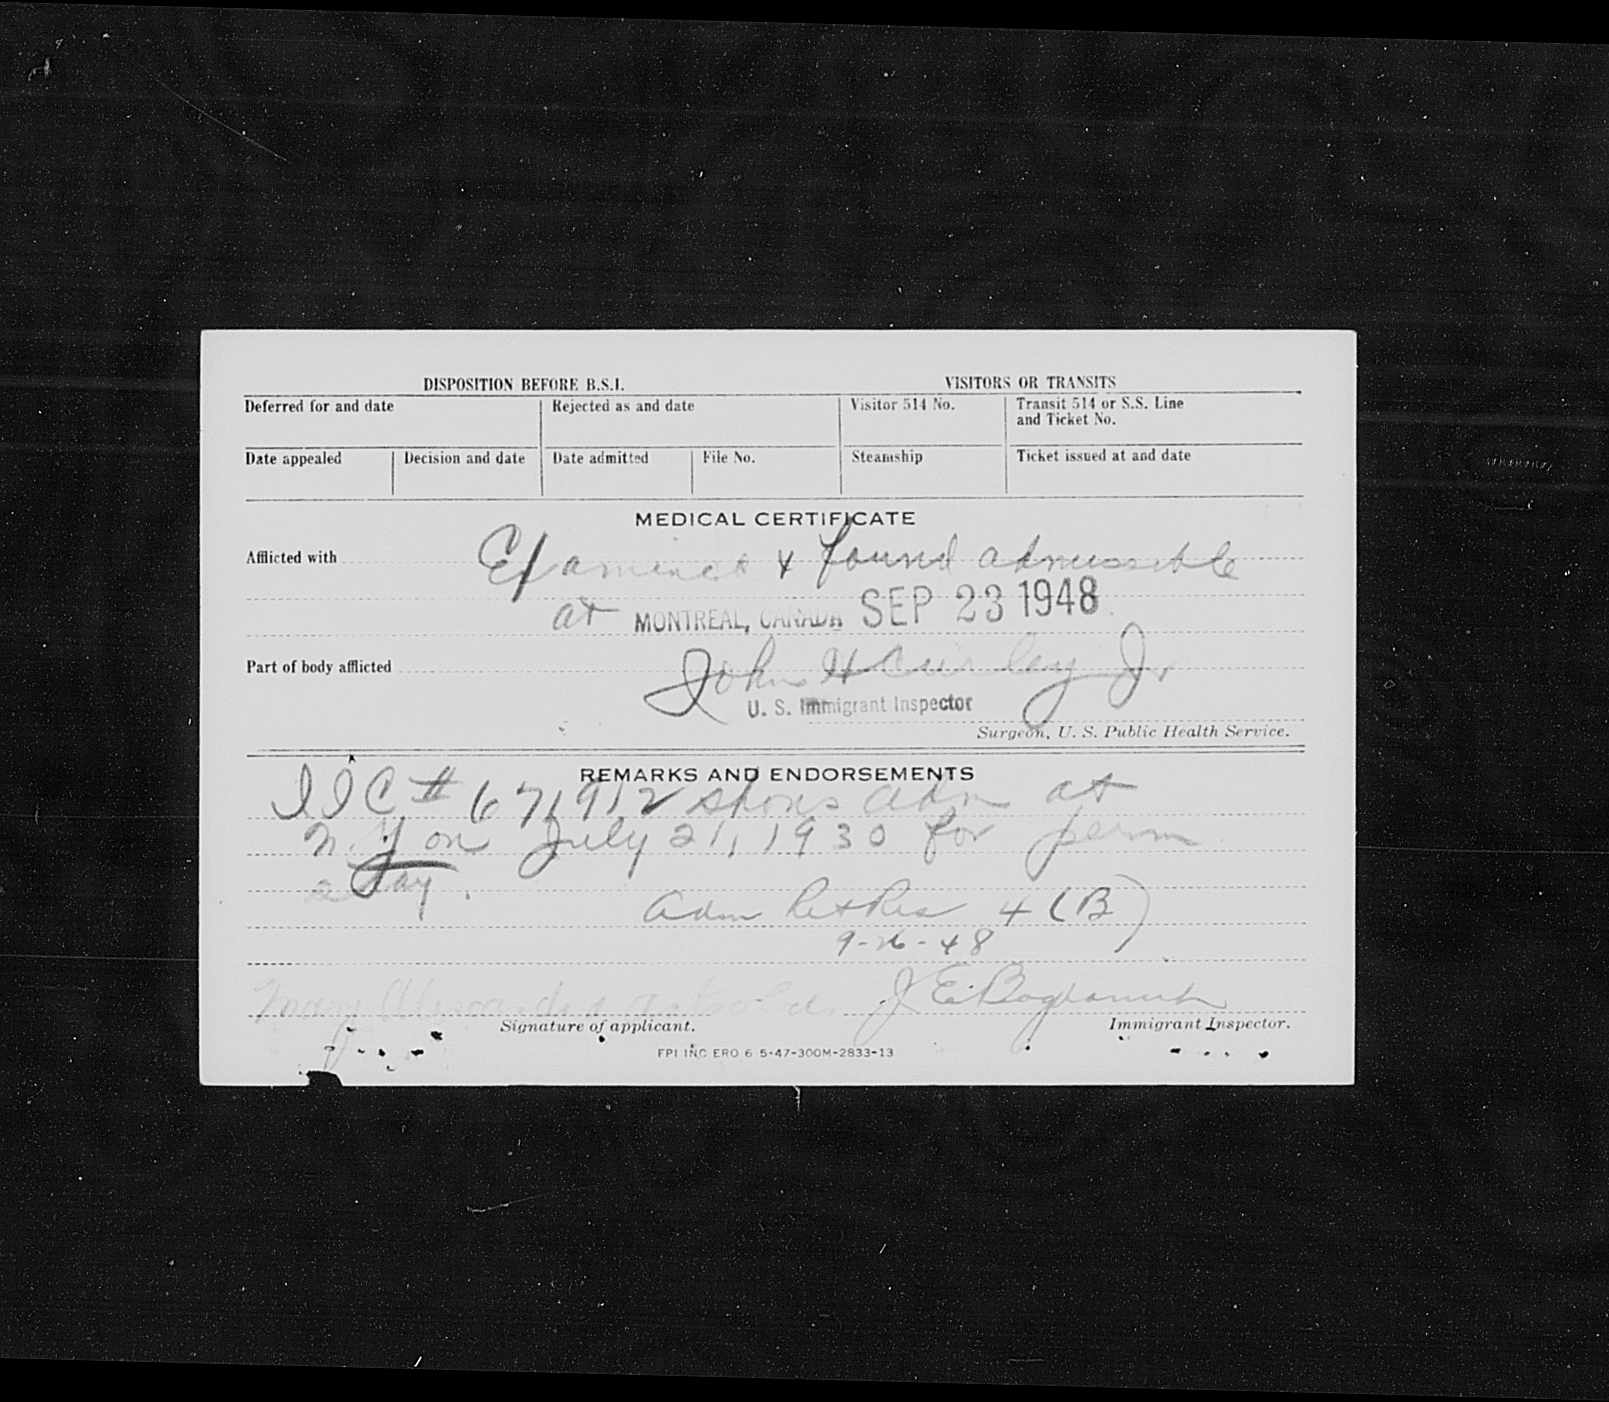 DISPOSITION BEFORE B.S.I.
VISITORS OR TRANSITS
Deferred for and date
Rejected as and date
Visitor 514 No.
Transit 514 or S.S. Line
and Ticket No.
Date appealed
Decision and date
Date admitted
File No.
Steamship
Ticket issued at and date
MEDICAL CERTIFICATE
Afflicted with Examined & found admissible
at MONTREAL, CANADA SEP 23 1948
Part of body afflicted
John H Curley Jr
U. S. Immigrant Inspector
Surgeon, U. S. Public Health Service.
REMARKS AND ENDORSEMENTS
IIC # 671912 shows adm at
N.Y on July 21, 1930 for perm
stay.
Adm Ret Res 4 (B)
9-26-48
Mary J E
Signature of applicant.
Immigrant Inspector.
FPI INC ERO 6 5-47-300M-2833-13